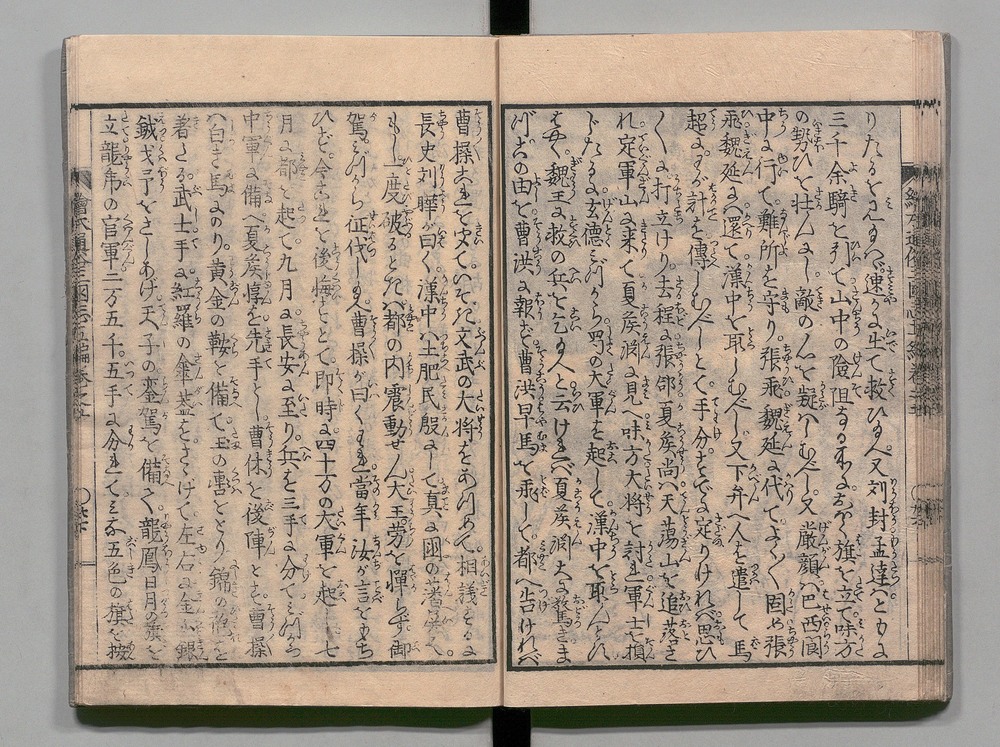 りたるを見るならバ速に出て救ひ給へ又刘封孟達ハともに
三千余騎を引て山中の險阻なる所に多く旗を立て味方
の勢ひを壮んにし敵の心を疑ハしむべし又厳顔ハ巴西閬
中に行て難所を守り張飛魏延に代てよく固め張
飛魏延ハ還て漢中を取しむべし又下弁へ人を遣して馬
超にも計を傳しむべしとて手分すでに定りければ思ひ
〱に打立けり去程に張郃夏矦尚ハ天蕩山を追落さ
れ定軍山に来て夏矦渊に見へ味方大将を討れ軍士を損
じたる上に玄德みづから四方の大軍を起して漢中を取んとす
はやく魏王に救の兵を乞給へと云ければ夏矦渊大に驚きま
づ此由を曹洪に報ず曹洪早馬を飛して都へ告ければ
曹操これを聞ていそぎ文武の大将をあつめて相議するに
長史刘曄が曰く漢中ハ土肥民殷にして真に国の藩屏
もし一度破るときハ都の内震動せん大王労を憚らず御
駕みづから征伐し給へ曹操が曰くわれ當年汝が言をもち
ひず今これを後悔すとて即時に四十万の大軍を起し七
月に都を起て九月に長安に至り兵を三手に分てみづから
中軍に備へ夏矦惇を先手とし曹休を後陣とす曹操
ハ白き馬にのり黄金の鞍を備て玉の轡をとり錦の袍を
着たる武士手に紅羅の傘蓋をさゝげて左右に金瓜銀
鉞戈矛をさしあげ天子の鑾駕を備へ龍鳳日月の旗を
立龍虎の官軍二万五千五手に分れてみな五色の旗を掞